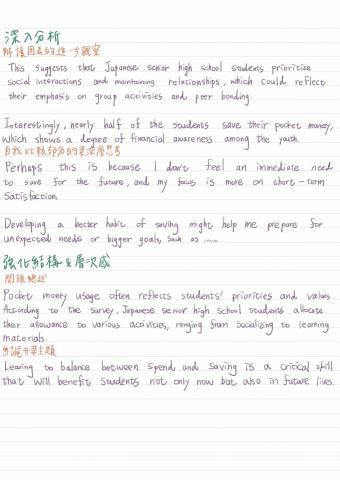 深入分析
解讀圖表的進一步觀察
This suggests that Japanese senior high school students prioritize
social interactions and maintaining relationships, which could reflect
their emphasis on group activities and peer bonding.
Interestingly, nearly half of the students save their pocket money,
which shows a degree of financial awareness among the youth.
自我比較部分的更深層思考
Perhaps this is because I don't feel an immediate need
to save for the future, and my focus is more on short-term
satisfaction.
Developing a better habit of saving might help me prepare for
unexpected needs or bigger goals, such as ……
強化結構&層次感
開頭總述
Pocket money usage often reflects students' priorities and values
According to the survey, Japanese senior high school students allocate
their allowance to various activities, ranging from socializing to learning
materials.
結尾升華主題
Learing to balance between spend and saving is a critical skill
that will benefit students not only now but also in future lives.